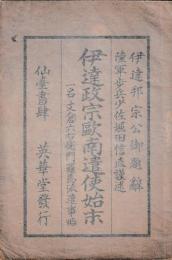 伊達邦宗公御題辭
陸軍步兵少佐堀田信直謹述
伊達政宗歐南遣使始末
一名支倉六右衛門羅馬派遣事略
仙臺書肆 英華堂發行